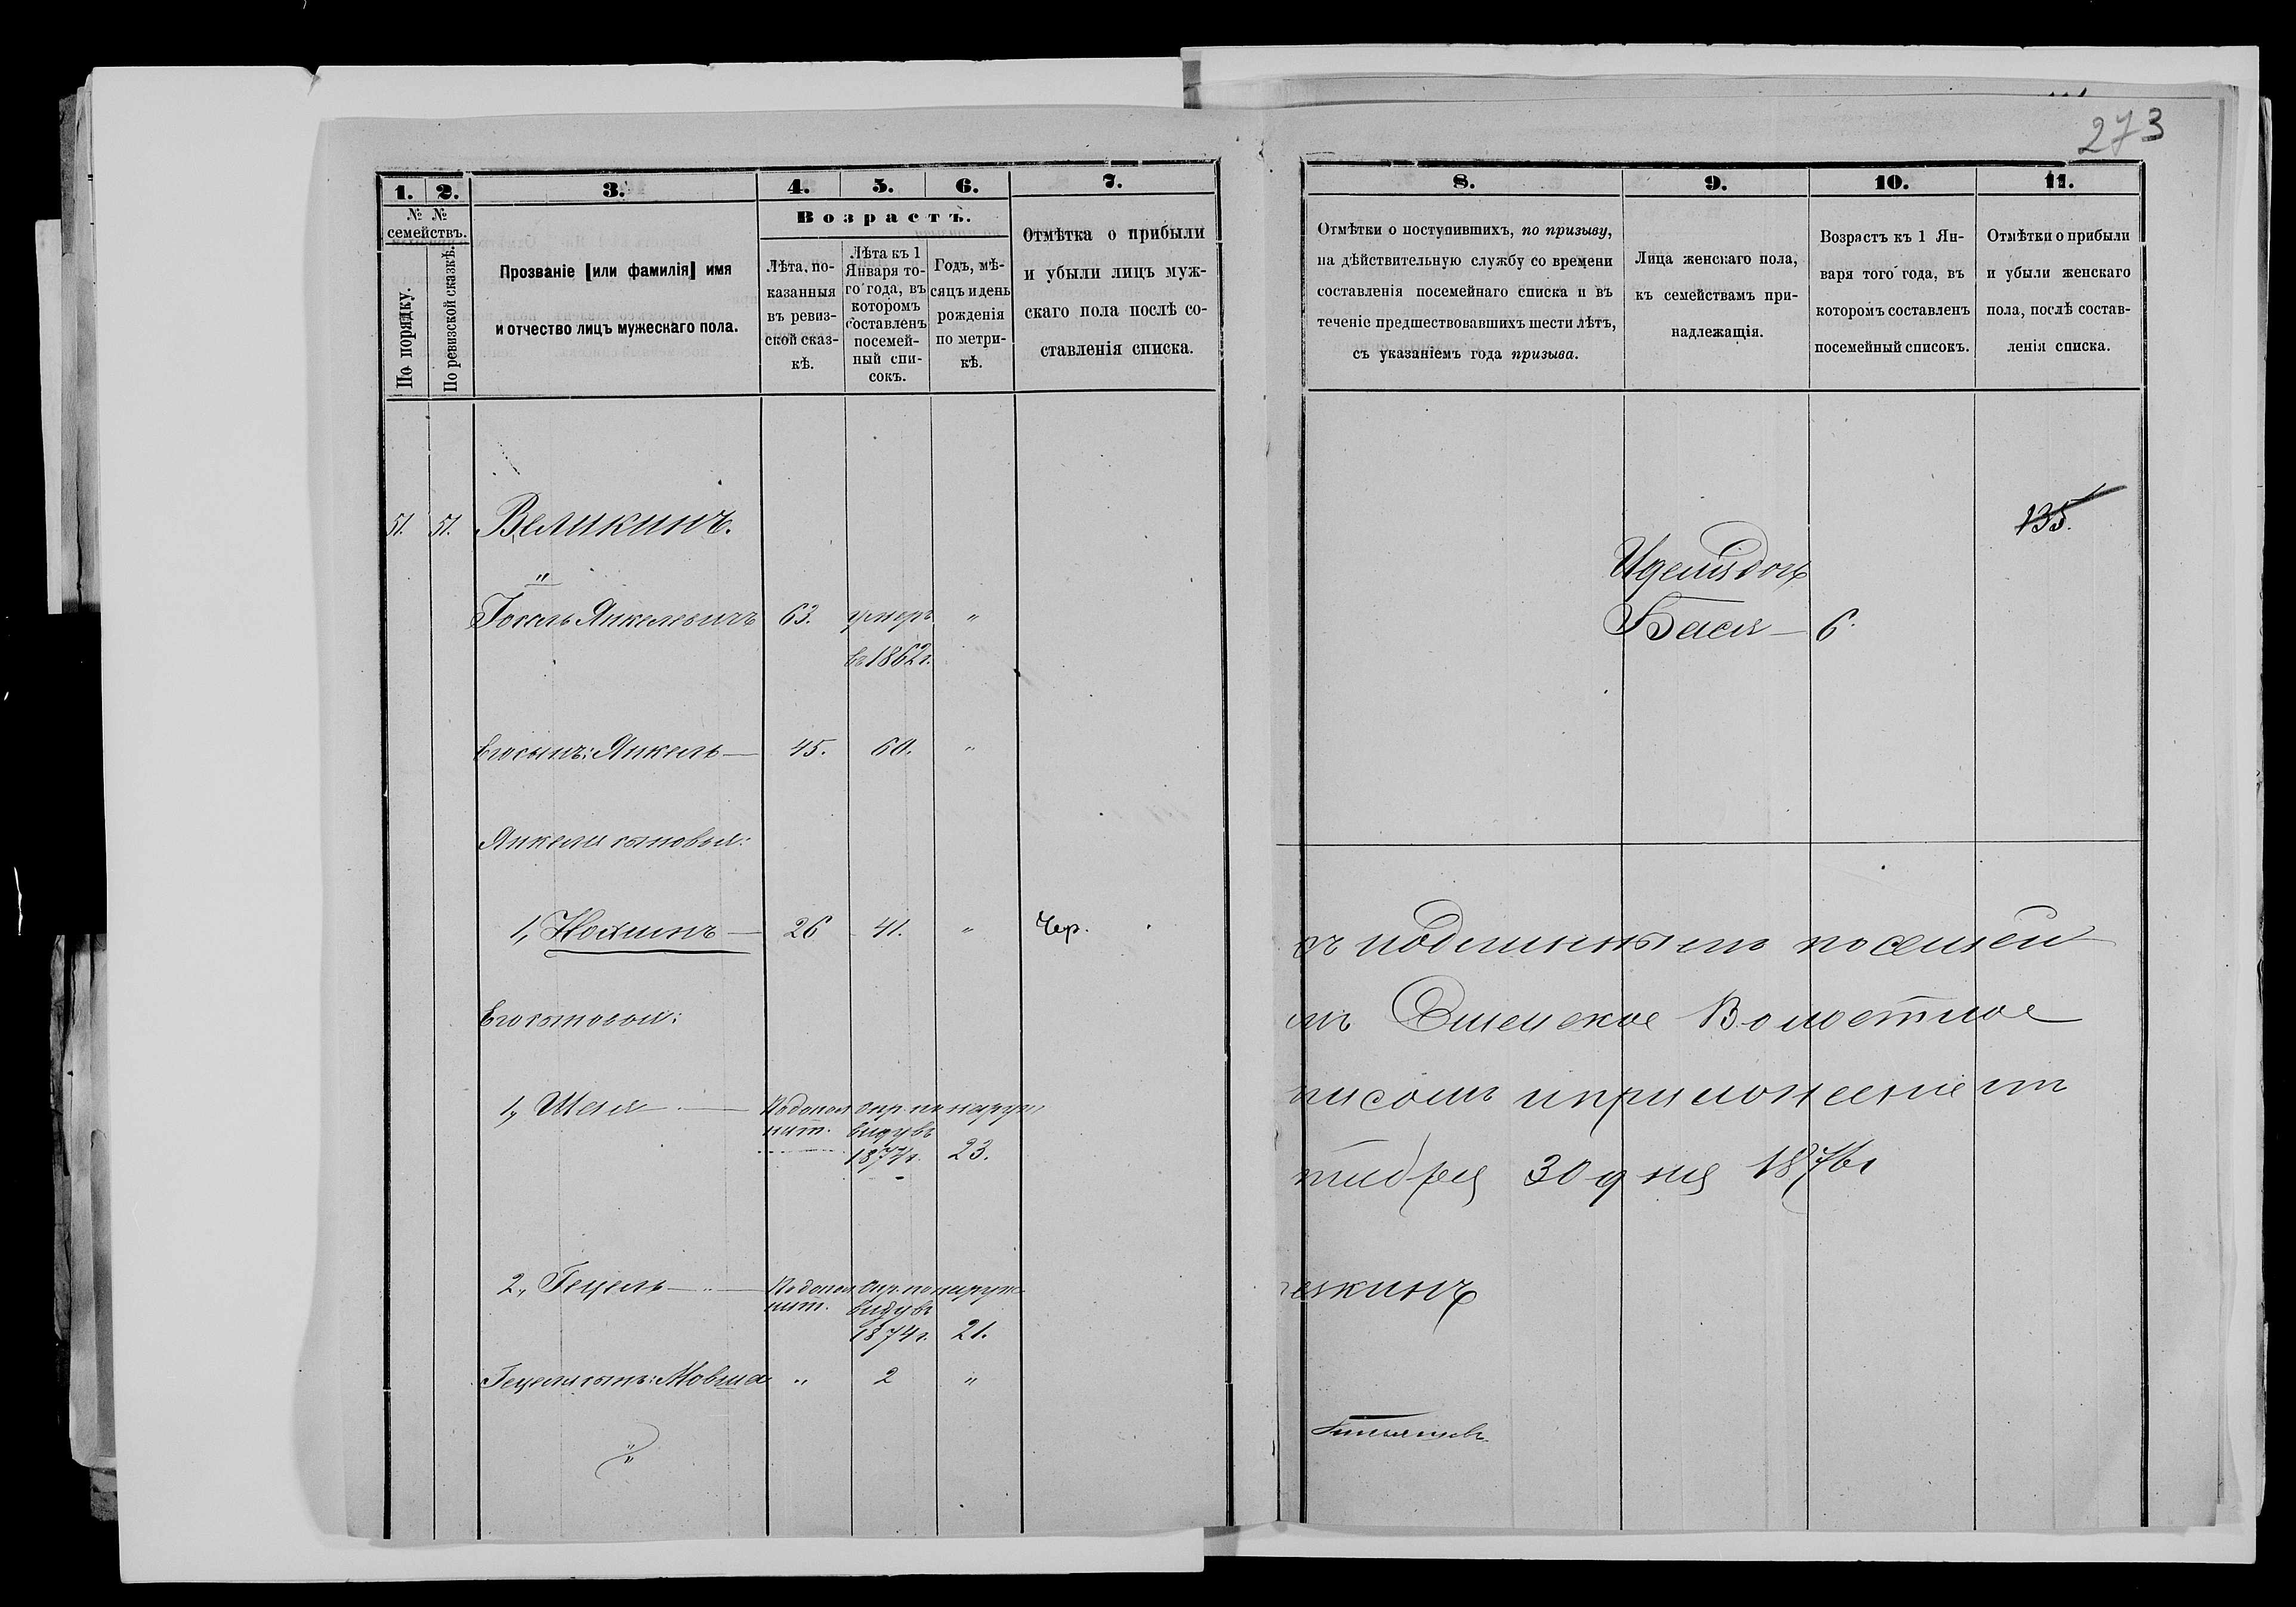 273
1. 2. 3. 4. 5. 6. 7.
№ № семействъ.
По порядку.
По ревизской сказкѣ.
Прозваніе [или фамилія] имя
и отчество лицъ мужескаго пола.
Возрастъ.
Лѣта, по-
казанныя
въ ревиз-
ской сказ-
кѣ.
Лѣта къ 1
Января то-
го года, въ
которомъ
составленъ
посемей-
ный спи-
сокъ.
Годъ, мѣ-
сяцъ и день
рожденія
по метри-
кѣ.
Отмѣтка о прибыли
и убыли лицъ муж-
скаго пола послѣ со-
ставленія списка.
51. 51. Великинъ.
"
Янкелевичъ 63. умеръ "
въ 1862 г.
Его сынъ: Янкель — 45. 60. "
Янкеля сыновья:
1, Нохимъ — 26 41. " Чер.
Его сыновья:
1, Шая — опр. по наруж
нит. виду въ
1874 г. 23.
2., Гецель — опр. по наруж
нит. виду въ
1874 г. 21.
Гецеля сынъ: Мовша " 2 "
"
8. 9. 10. 11.
Отмѣтки о поступившихъ, по призыву,
на дѣйствительную службу со времени
составленія посемейнаго списка и въ
теченіе предшествовавшихъ шести лѣтъ,
съ указаніемъ года призыва.
Лица женскаго пола,
къ семействамъ при-
надлежащія.
Возрастъ къ 1 Ян-
варя того года, въ
которомъ составленъ
посемейный списокъ.
Отмѣтки о прибыли
и убыли женскаго
пола, послѣ состав-
ленія списка.
135.
Бася — 6.
подлиннымъ посемей
Волостное
писомъ и приложеніемъ
тября 30 дня 1876 г